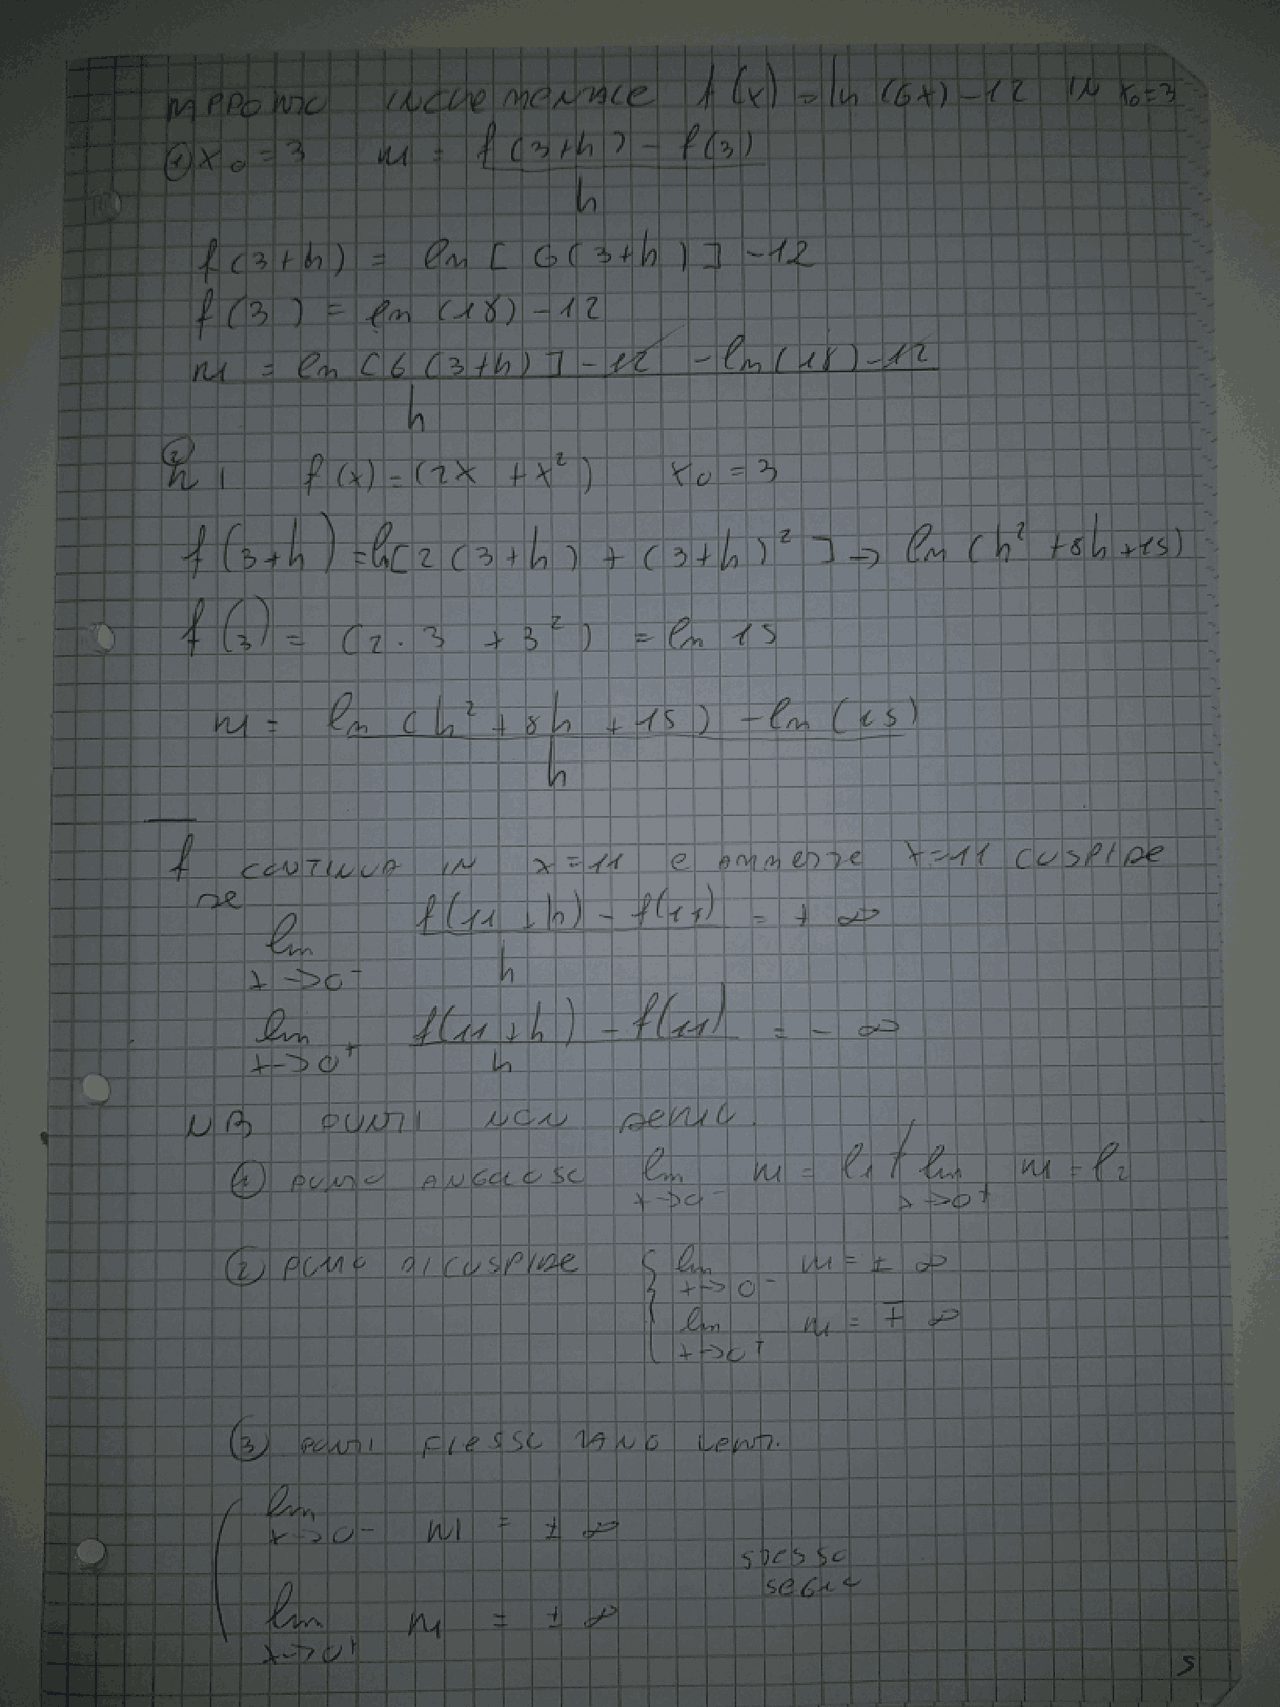 RAPPORTO INCREMENTALE f(x) = ln (6x) - 12 IN x₀=3
① x₀ = 3 m = f(3+h) - f(3)
h
f(3+h) = ln [ 6(3+h) ] - 12
f(3) = ln (18) - 12
m = ln [6 (3+h)] - 12 - ln(18) - 12
h
②
f(x) = (2x + x²) x₀ = 3
f(3+h) = ln[2(3+h) + (3+h)²] → ln (h² + 8h + 15)
f(3) = (2·3 + 3²) = ln 15
m = ln (h² + 8h + 15) - ln (15)
h
f CONTINUA IN x=11 E AMMETTE x=11 CUSPIDE
se
lim f(11+h) - f(11) = + ∞
x→0⁻ h
lim f(11+h) - f(11) = - ∞
x→0⁺ h
NB PUNTI NON DERIV.
① PUNTO ANGOLOSO lim m = l₁ ≠ lim m = l₂
x→0⁻ x→0⁺
② PUNTO DI CUSPIDE { lim m = ± ∞
x→0⁻
lim m = ∓ ∞
x→0⁺
③ PUNTI FLESSO TANG VERT.
lim m = ± ∞
x→0⁻
STESSO
SEGNO
lim m = ± ∞
x→0⁺
5